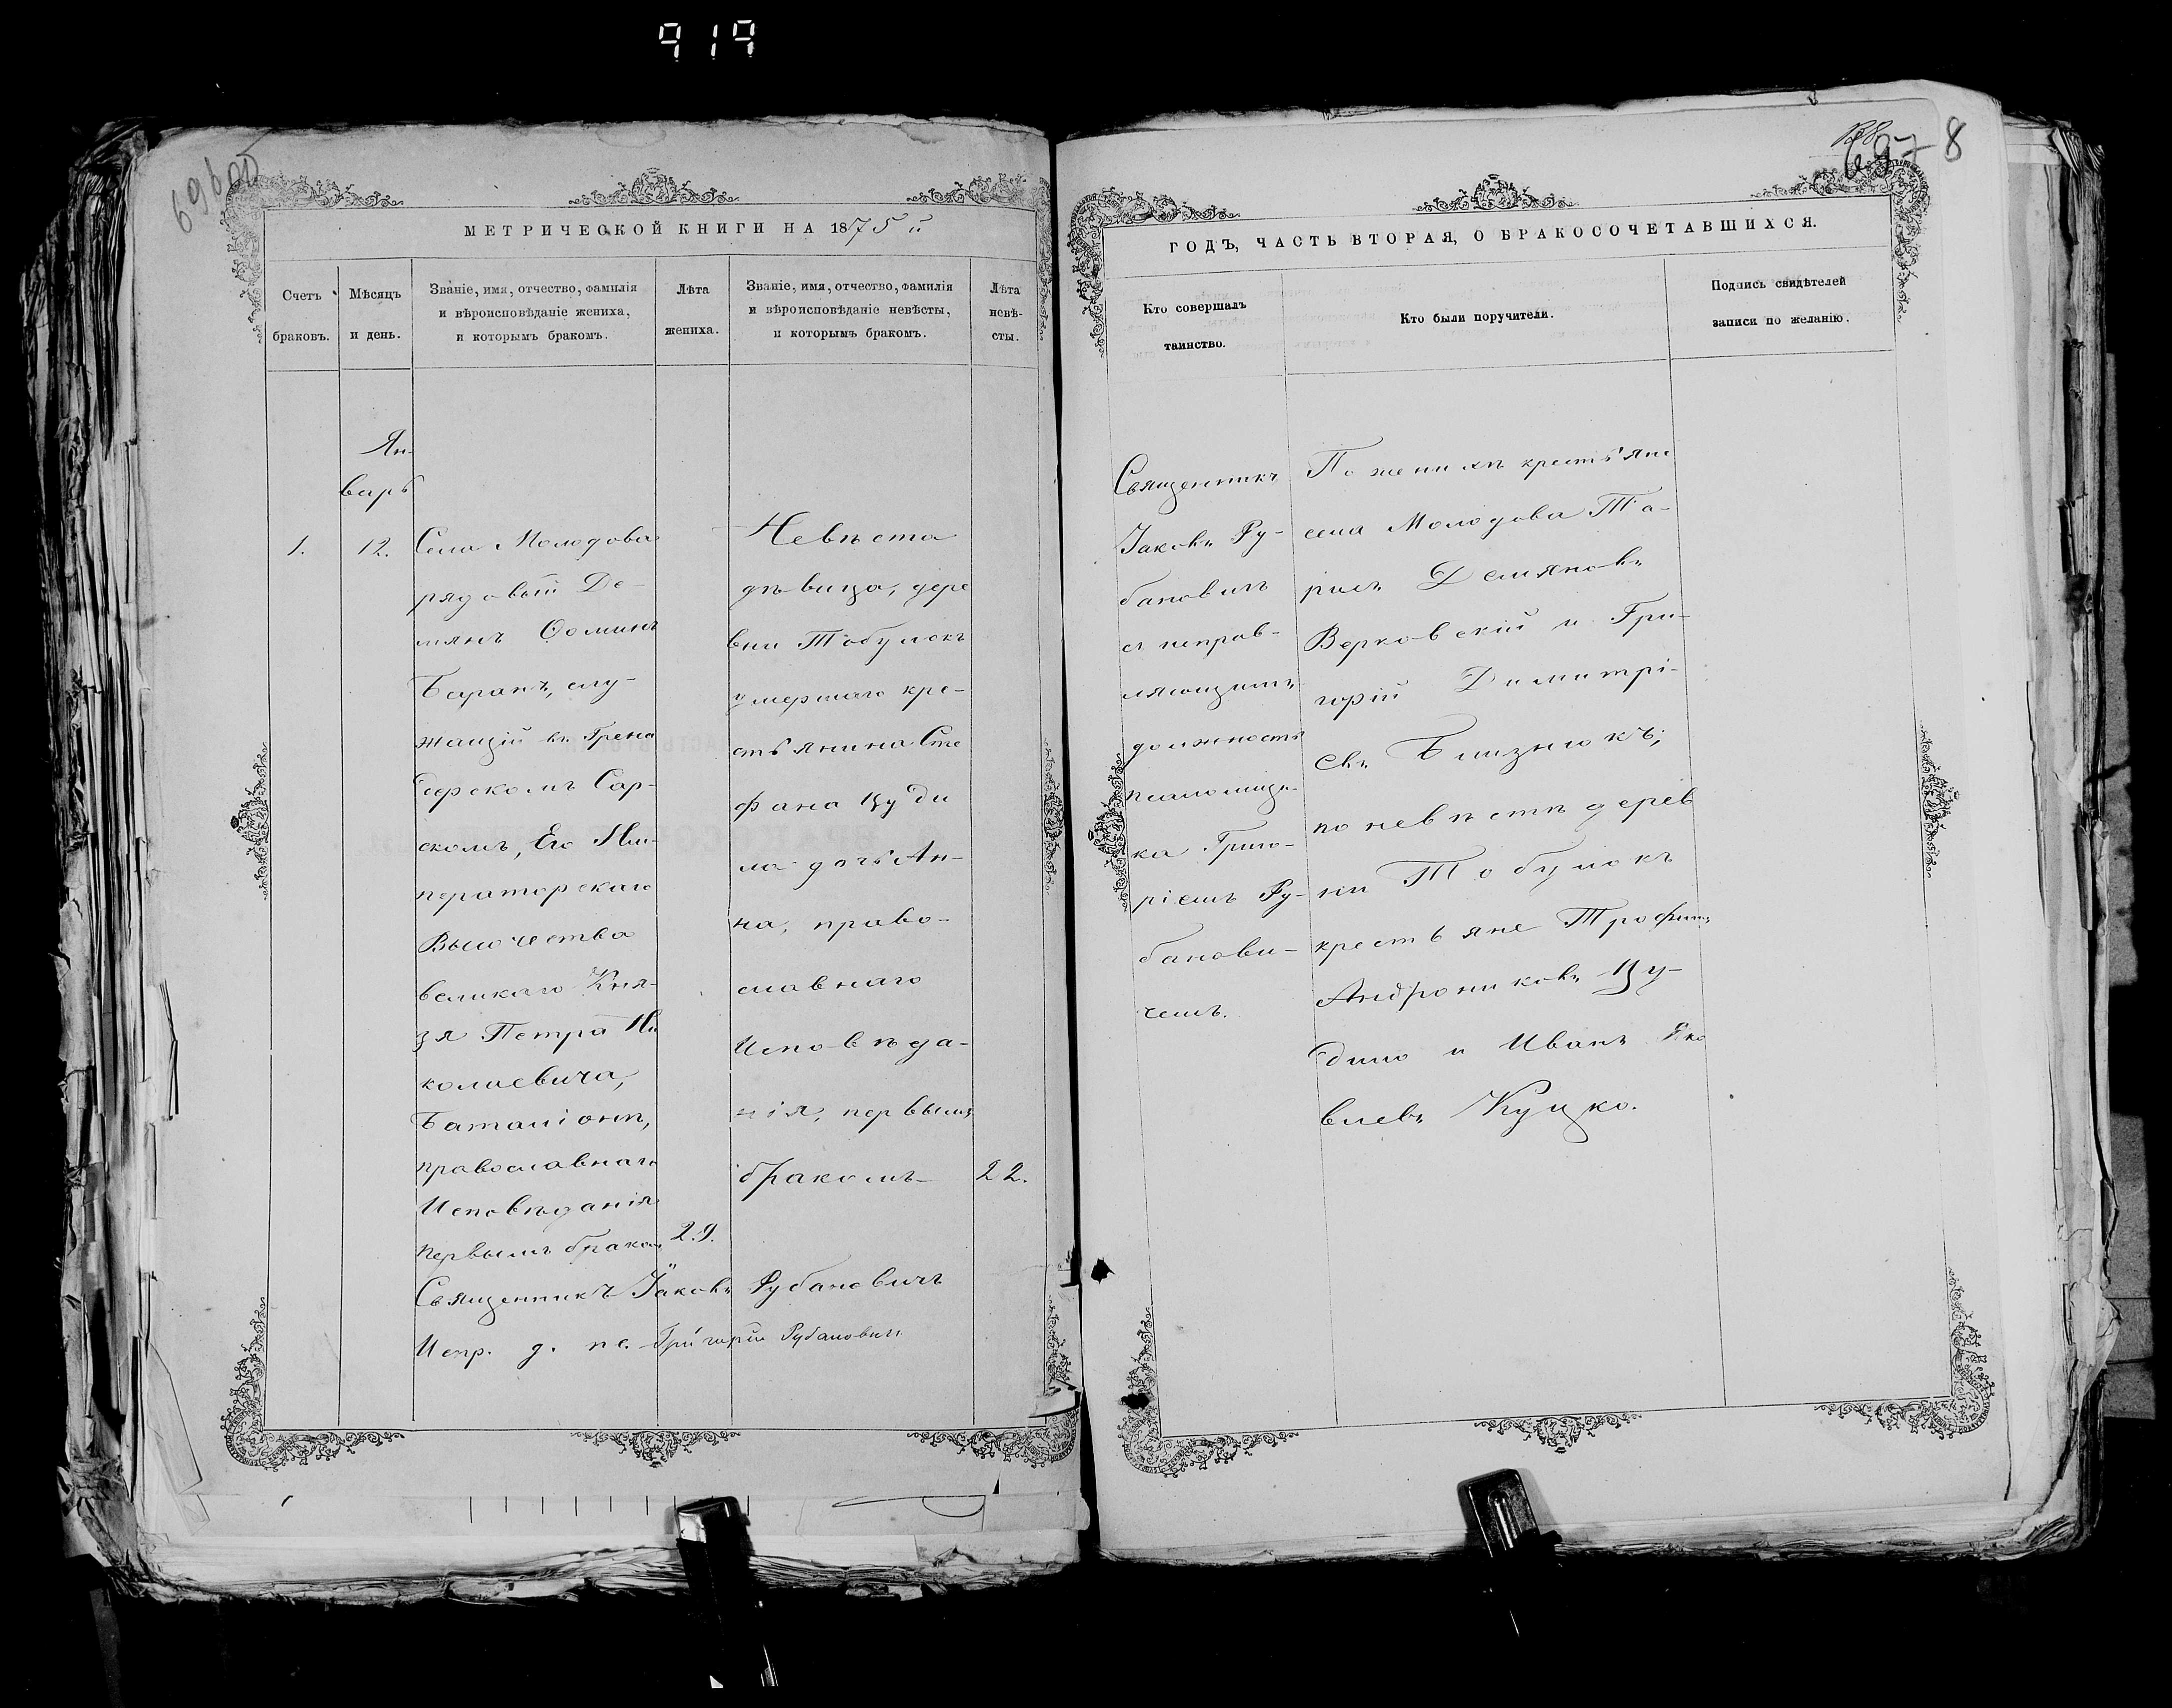 919
696 об
697 8
МЕТРИЧЕСКОЙ КНИГИ НА 1875 й
Счетъ
браковъ.
Мѣсяцъ
и день.
Званіе, имя, отчество, фамилія
и вѣроисповѣданіе жениха,
и которымъ бракомъ.
Лѣта
жениха.
Званіе, имя, отчество, фамилія
и вѣроисповѣданіе невѣсты,
и которымъ бракомъ.
Лѣта
невѣ-
сты.
Ян-
варь
1.
12.
Села Молодова
рядовый Де-
мянъ Ѳоминъ
Баранъ, слу-
жащій въ Грена
дерскомъ Сар-
скомъ, Его Им-
ператорскаго
Высочества
великаго Кня-
зя Петра Ни
колаевича,
Баталіонѣ,
православнаго
Исповѣданія
первымъ бракомъ
29.
Невѣста
дѣвица, дере
вни Тобулокъ
умершаго кре-
стьянина Сте
фана Цуди
ла дочь Ан-
на, право-
славнаго
Исповѣда-
нія, первымъ
бракомъ
22.
Священникъ Іаковъ Рубановичъ
Испр. д. пс. Григорій Рубановичъ
ГОДЪ, ЧАСТЬ ВТОРАЯ, О БРАКОСОЧЕТАВШИХСЯ.
Кто совершалъ
таинство.
Кто были поручители.
Подпись свидѣтелей
записи по желанію.
Священникъ
Іаковъ Ру-
бановичъ
съ исправ-
ляющимъ
должность
псаломщи-
ка Григо-
ріемъ Ру-
банови-
чемъ.
По женихѣ крестьяне
села Молодова Та-
расъ Демяновъ
Верковскій и Гри-
горій Димитрі-
евъ Близнюкъ;
по невѣстѣ дерев
ни Тобулокъ
крестьяне Трофимъ
Андрониковъ Цу-
дило и Иванъ Яко
влевъ Куцко.